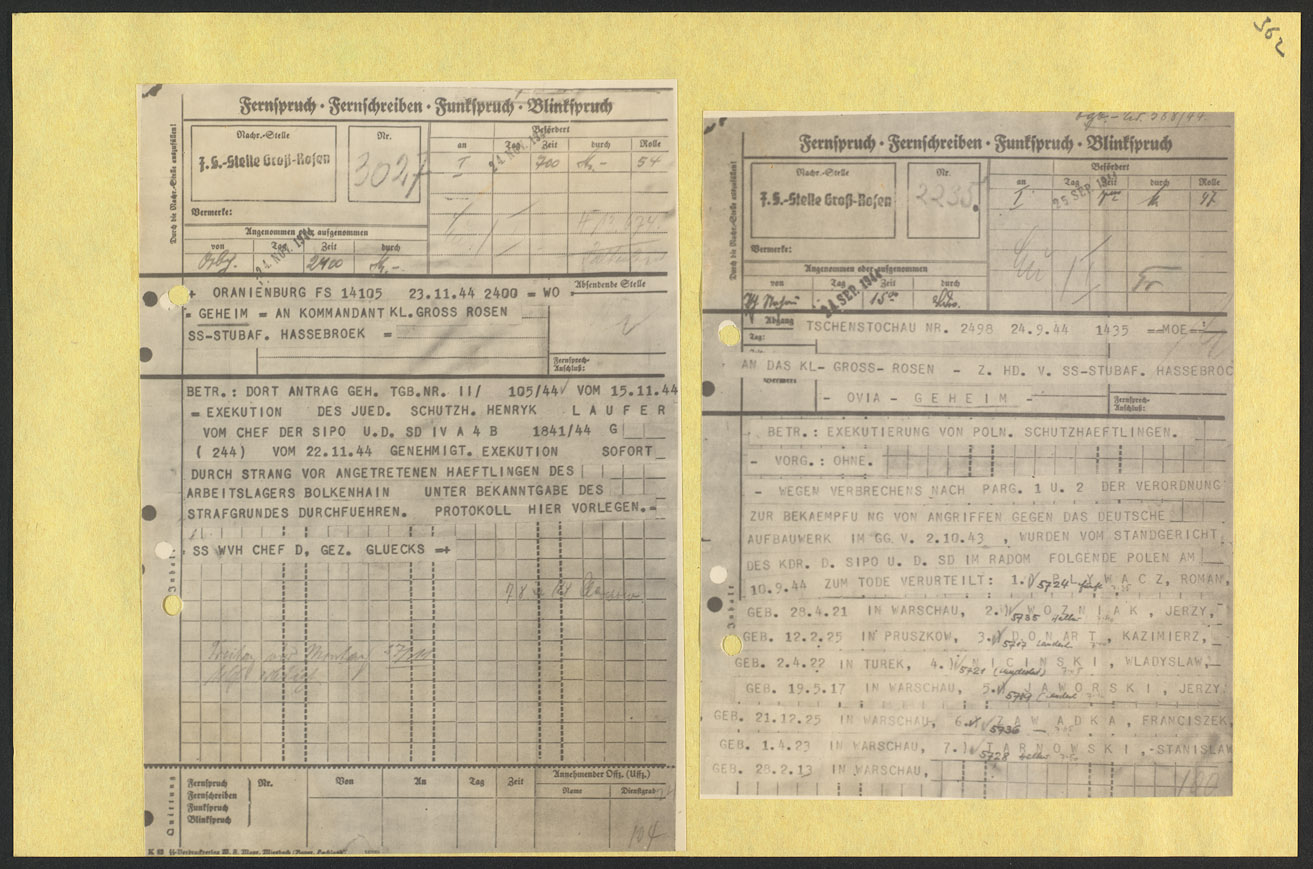 562
Fernspruch · Fernschreiben · Funkspruch · Blinkspruch
Durch die Nachr.-Stelle auszufüllen!
Nachr.-Stelle
F.S.-Stelle Groß-Rosen
Nr.
3027
Befördert
an Tag Zeit durch Rolle
I 24. NOV. 700 54
Vermerke:
Angenommen oder aufgenommen
von Tag Zeit durch
24. NOV. 1944 2400
Absendende Stelle
+ ORANIENBURG FS 14105 23.11.44 2400 = WO
= GEHEIM = AN KOMMANDANT KL. GROSS ROSEN
SS-STUBAF. HASSEBROEK =
Fernsprech-
Anschluß:
BETR.: DORT ANTRAG GEH. TGB.NR. II/ 105/44 VOM 15.11.44
= EXEKUTION DES JUED. SCHUTZH. HENRYK L A U F E R
VOM CHEF DER SIPO U.D. SD IV A 4 B 1841/44 G
( 244) VOM 22.11.44 GENEHMIGT. EXEKUTION SOFORT
DURCH STRANG VOR ANGETRETENEN HAEFTLINGEN DES
ARBEITSLAGERS BOLKENHAIN UNTER BEKANNTGABE DES
STRAFGRUNDES DURCHFUEHREN. PROTOKOLL HIER VORLEGEN.=
SS WVH CHEF D, GEZ. GLUECKS =+
Inhalt
Quittung
Fernspruch
Fernschreiben
Funkspruch
Blinkspruch
Nr. Von An Tag Zeit
Annehmender Offz. (Uffz.)
Name Dienstgrad
104
Fernspruch · Fernschreiben · Funkspruch · Blinkspruch
Durch die Nachr.-Stelle auszufüllen!
Nachr.-Stelle
F.S.-Stelle Groß-Rosen
Nr.
2235
Befördert
an Tag Zeit durch Rolle
I 25 SEP. 1944 97
Vermerke:
Angenommen oder aufgenommen
von Tag Zeit durch
24. SEP. 1944 15
Abgang
Tag:
TSCHENSTOCHAU NR. 2498 24.9.44 1435 ==MOE=
AN DAS KL- GROSS- ROSEN - Z. HD. V. SS-STUBAF. HASSEBROC
- OVIA - G E H E I M -
Fernsprech-
Anschluß:
BETR.: EXEKUTIERUNG VON POLN. SCHUTZHAEFTLINGEN.
- VORG.: OHNE.
- WEGEN VERBRECHENS NACH PARG. 1 U. 2 DER VERORDNUNG
ZUR BEKAEMPFU NG VON ANGRIFFEN GEGEN DAS DEUTSCHE
AUFBAUWERK IM GG. V. 2.10.43 , WURDEN VOM STANDGERICHT
DES KDR. D. SIPO U. D. SD IM RADOM FOLGENDE POLEN AM
10.9.44 ZUM TODE VERURTEILT: 1.) P L Y W A C Z, ROMAN,
5724
GEB. 28.4.21 IN WARSCHAU, 2.) W O Z N I A K , JERZY,
5735
GEB. 12.2.25 IN PRUSZKOW, 3.) D O N A R T , KAZIMIERZ,
5707
GEB. 2.4.22 IN TUREK, 4.) N I C I N S K I , WLADYSLAW,
5721
GEB. 19.5.17 IN WARSCHAU, 5.) J A W O R S K I , JERZY
GEB. 21.12.25 IN WARSCHAU, 6.) Z A W A D K A , FRANCISZEK,
5736
GEB. 1.4.23 IN WARSCHAU, 7.) T A R N O W S K I ,-STANISLAW
5728
GEB. 28.2.13 IN WARSCHAU,
Inhalt